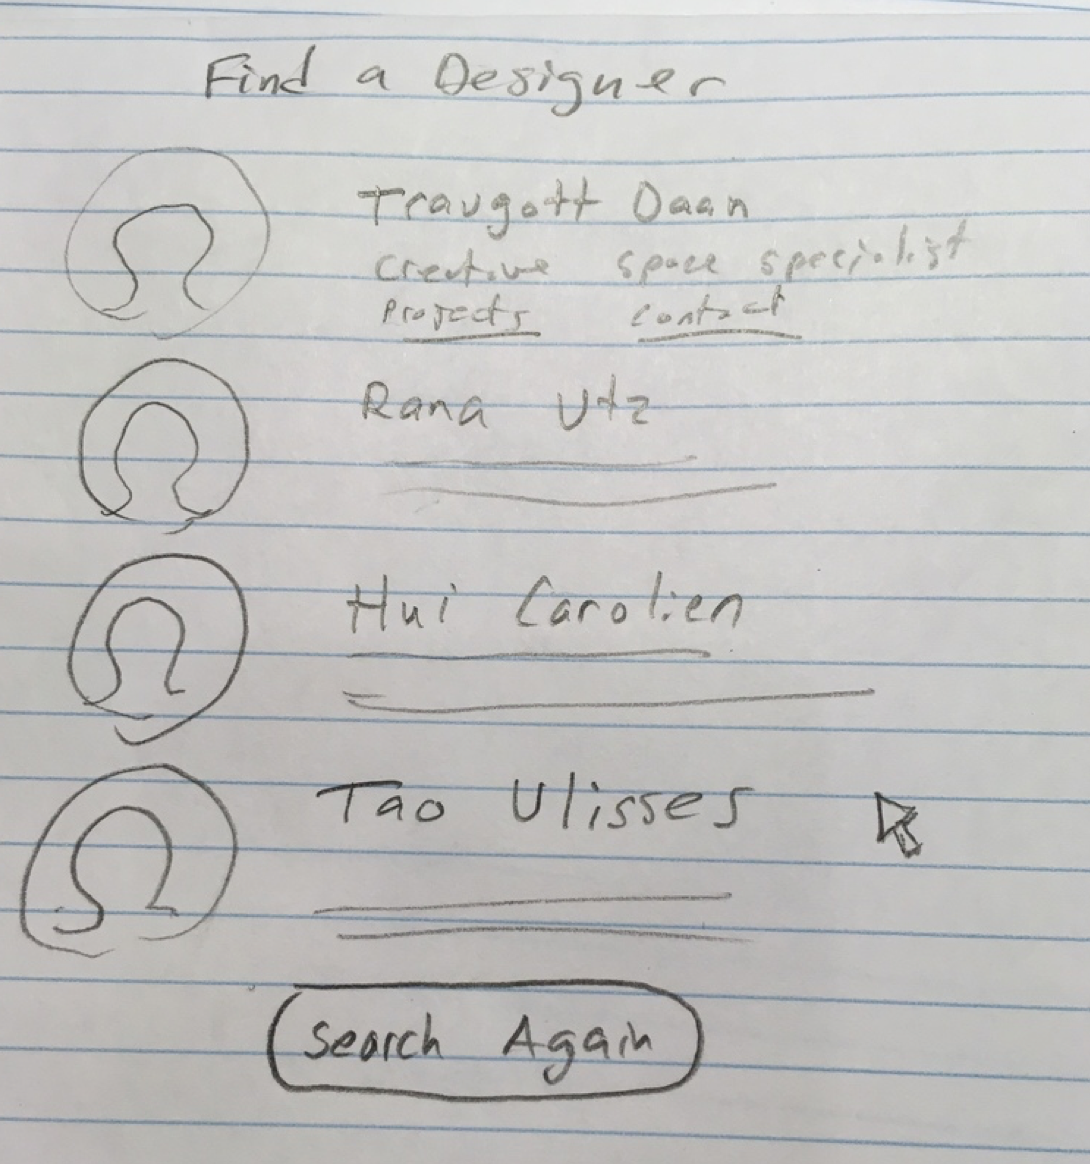 Find a Designer
Traugott Daan
Creative space specialist
Projects contact
Rana Utz
Hui Carolien
Tao Ulisses
Search Again